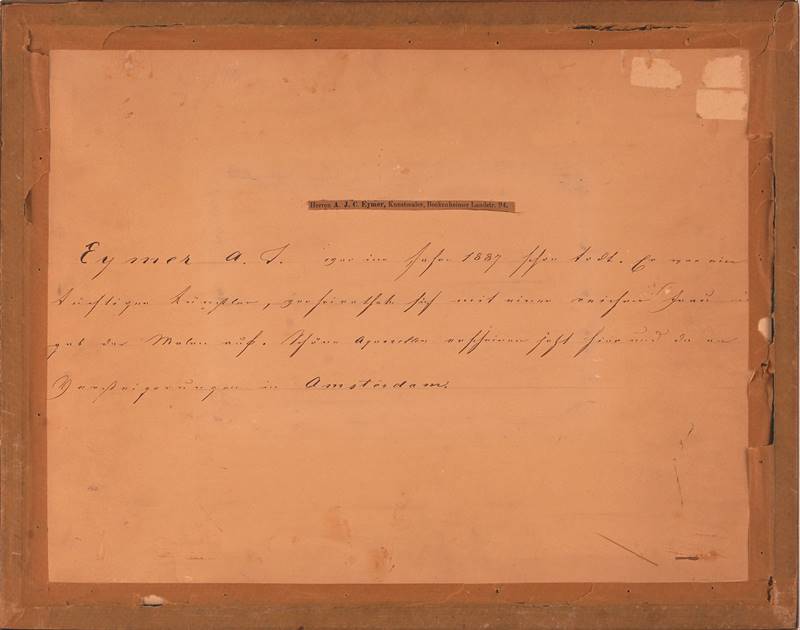 Herrn A. J. C. Eymer, Kunstmaler, Bockenheimer Landstr. 94.
Eymer A. J. war im Jahre 1887 schon todt. Er war ein
tüchtiger Künstler, verheirathete sich mit einer reichen Frau u
gab das Malen auf. Schöne Aquarelle erscheinen jetzt hier und da an
Versteigerungen in Amsterdam.